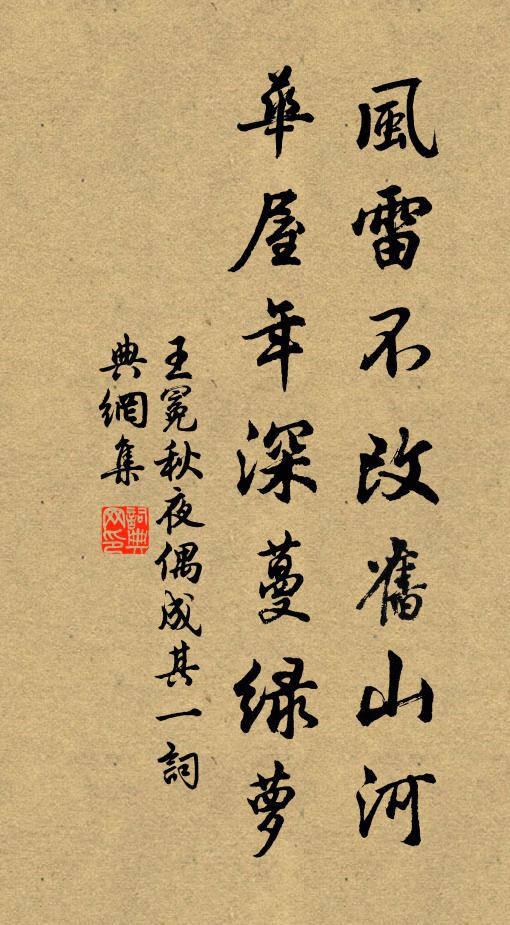 風雷不改舊山河
華屋年深蔓绿萝
王冕秋夜偶成其一詞
典網集
詞典
网印